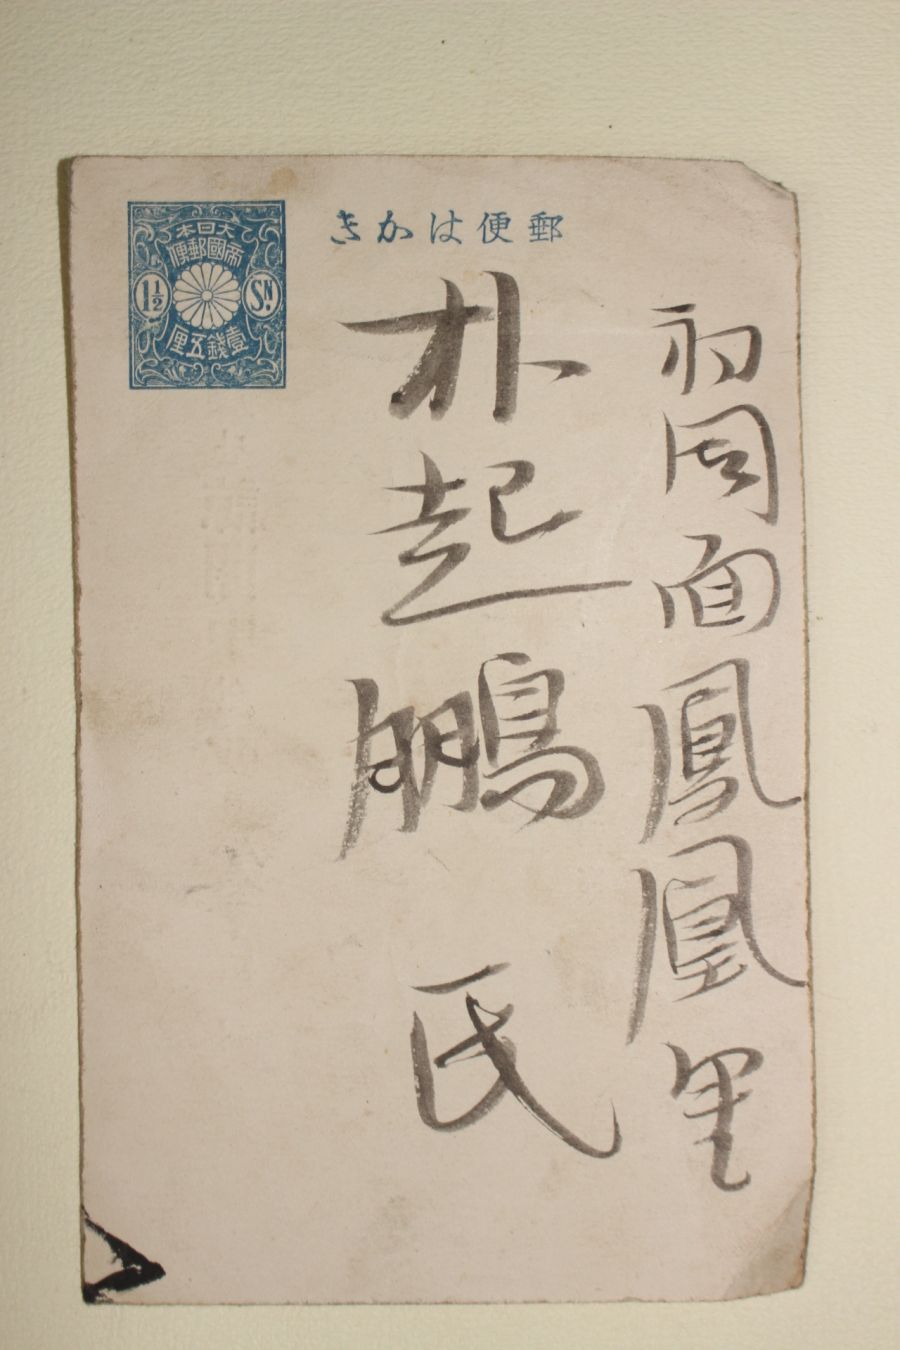 郵便はかき
大日本
帝國郵便
1½ Sɴ.
壹錢五厘
初周面鳳凰里
朴起鵬氏